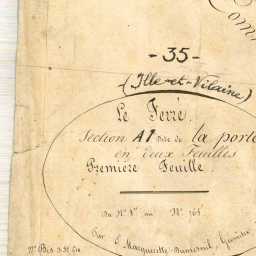 Com
- 35 -
(Ille-et-Vilaine)
Le Ferré.
Section A1 Dite de la porte
en deux Feuilles
Première Feuille.
Du N° 1er au N° 765
Par E. Marquerite Dumesnil, Géomètre